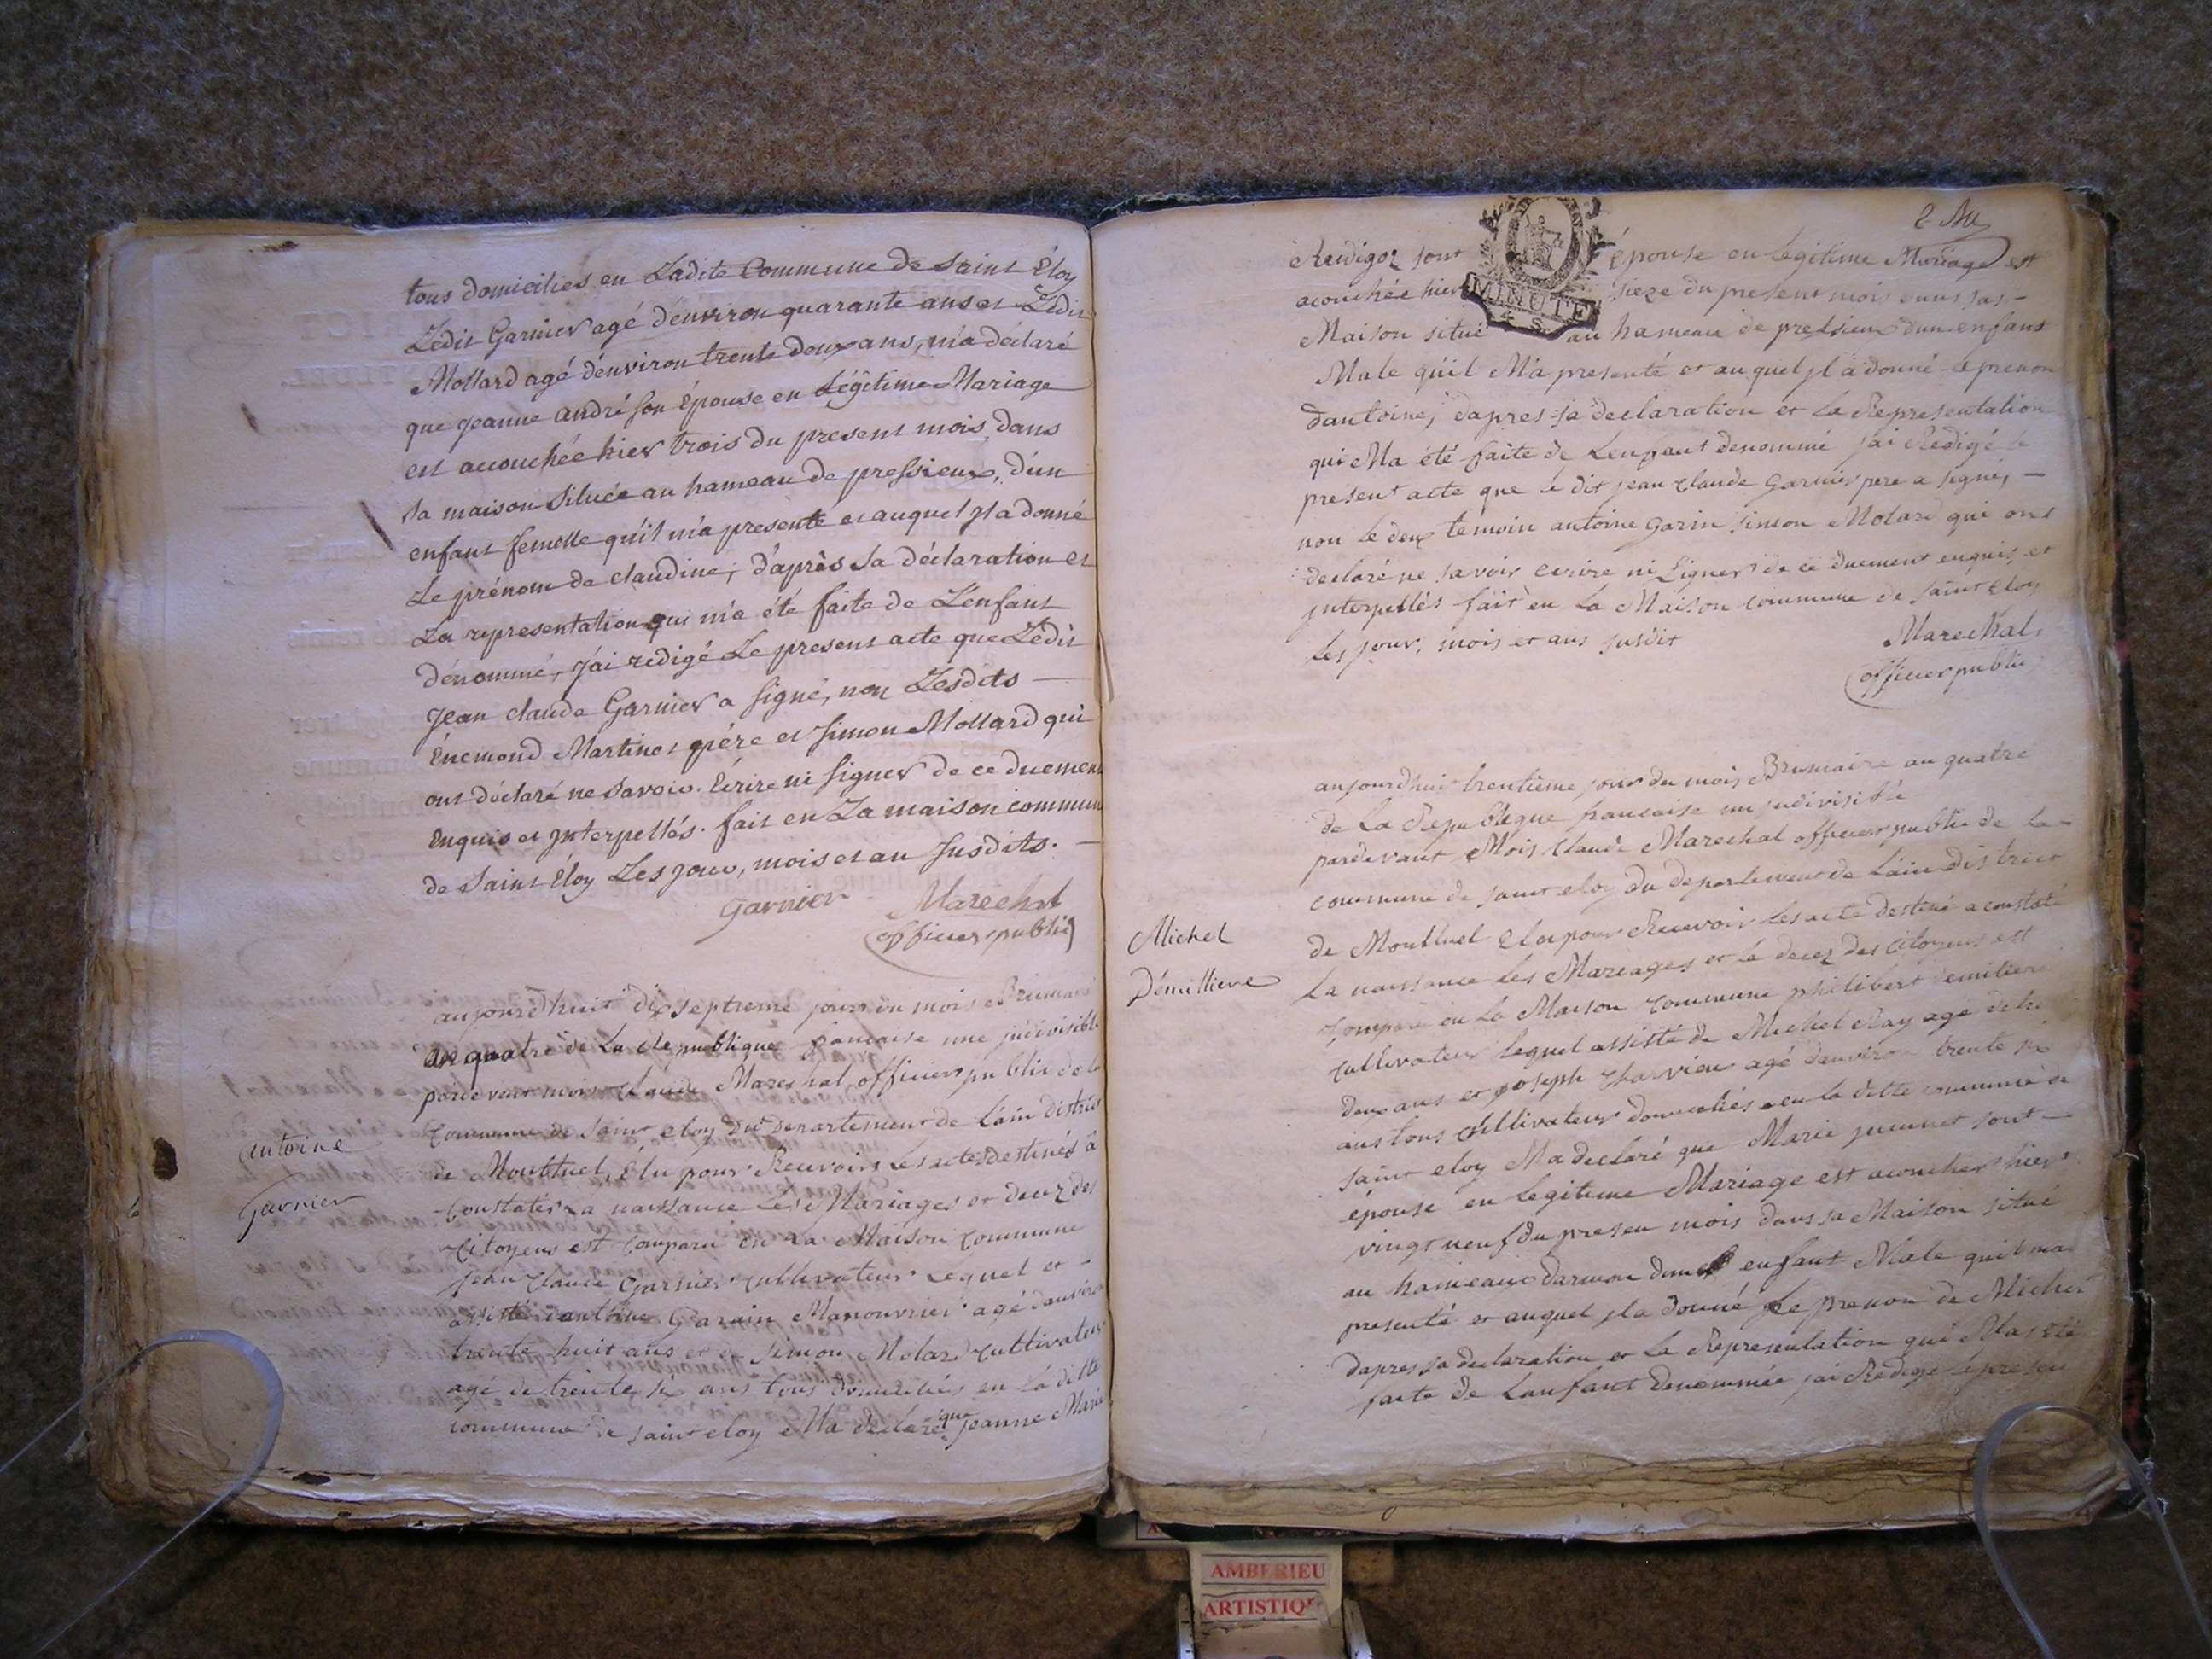 tous domiciliés en Ladite Commune de Saint Éloy
Ledit Garnier agé d'environ quarante ans et Ledit
Mollard agé d'environ trente deux ans, m'a déclaré
que Jeanne andré son Épouse en Légitime Mariage
est accouchée hier trois du present mois, dans
sa maison Située au hameau de pressieux, d'un
enfant femelle qu'il m'a presenté et auquel Il a donné
Le prénom de claudine; d'après sa déclaration et
La representation qui m'a été faite de L'enfant
dénommé, J'ai redigé Le present acte que Ledit
Jean claude Garnier a Signé, non Lesdits —
Énemond Martinet père et Simon Mollard qui
ont déclaré ne savoir Écrire ni Signer de ce duement
Enquis et Interpellés. fait en La maison commune
de Saint Éloy Les jour, mois et an Susdits. —
Garnier Marechal
officier public
aujourdhuit dix septieme jour du mois Brumaire
an quatre de La Republique francaise une indivisible
pardevant moi Claude Mareshal officier public de la
Commune de Saint eloy du Departement de L'ain district
antoine
garnier
de Montluel, Élu pour Recevoir Les actes destinés à
Constater La naissance Les Mariages et decez des
Citoyens est comparu en La Maison Commune
jean Claude Garnier Cultivateur Lequel et -
assisté dantoine Garain Manouvrier agé danviron
trente huit ans et de Simon Molard Cultivateur
agé de trente six ans tous domiciliés en La ditte
commune de saint eloy Ma declaré que Jeanne Marie
2 Bu
Rendigoz sont épouse en Legitime Mariage est
acouchée hier MINUTE seze du present mois dans sas -
Maison situé 4 S au hameau de pressieux dun enfant
Male qu'il M'a presenté et auquel jl a donné le prenon
dantoine, dapres sa declaration et La Representation
qui Ma été faite de Lenfant denommé jai Redigé le
present acte que le dit jean Claude Garnier pere a signé, —
non le deux temoin antoine Garin simson Molard qui ont
declaré ne savoir ecrire ni Signer de ce duement enquis et
jnterpellés fait en La Maison commune de saint eloy
Les jour, mois et ans susdit
Marechal
officier public
aujourdhui trentième jour du mois Brumaire an quatre
de La Republique francaise un jndivisible
pardevant Mois Claude Marechal officier public de La
commune de saint eloy du departement de Lain district
Michel
Démilliere
de Montluel Elu pour Recevoir Les acte destiné a constaté
La naissance Les Mareages et Le decez des Citoyens est
Comparu en La Maison Commune philibert demiliere
Cultivateur Lequel assisté de Michel Ray agé de
deux ans et joseph Charvieu agé danviron trente six
ans tous cultivateur domiciliés en la ditte commune de
saint eloy Ma declaré que Marie jucunet sont —
épouse en Legitime Mariage est acoucher hier
vingt neuf du presen mois dans sa Maison situé
au hameaux darmon dun enfant Male quil ma
presenté et auquel jl a donné Le prenon de Michel
Dapres sa declaration et La Representation qui Mas eté
faite de Lanfant denommée jai Redigé le presen
AMBERIEU
ARTISTIQ